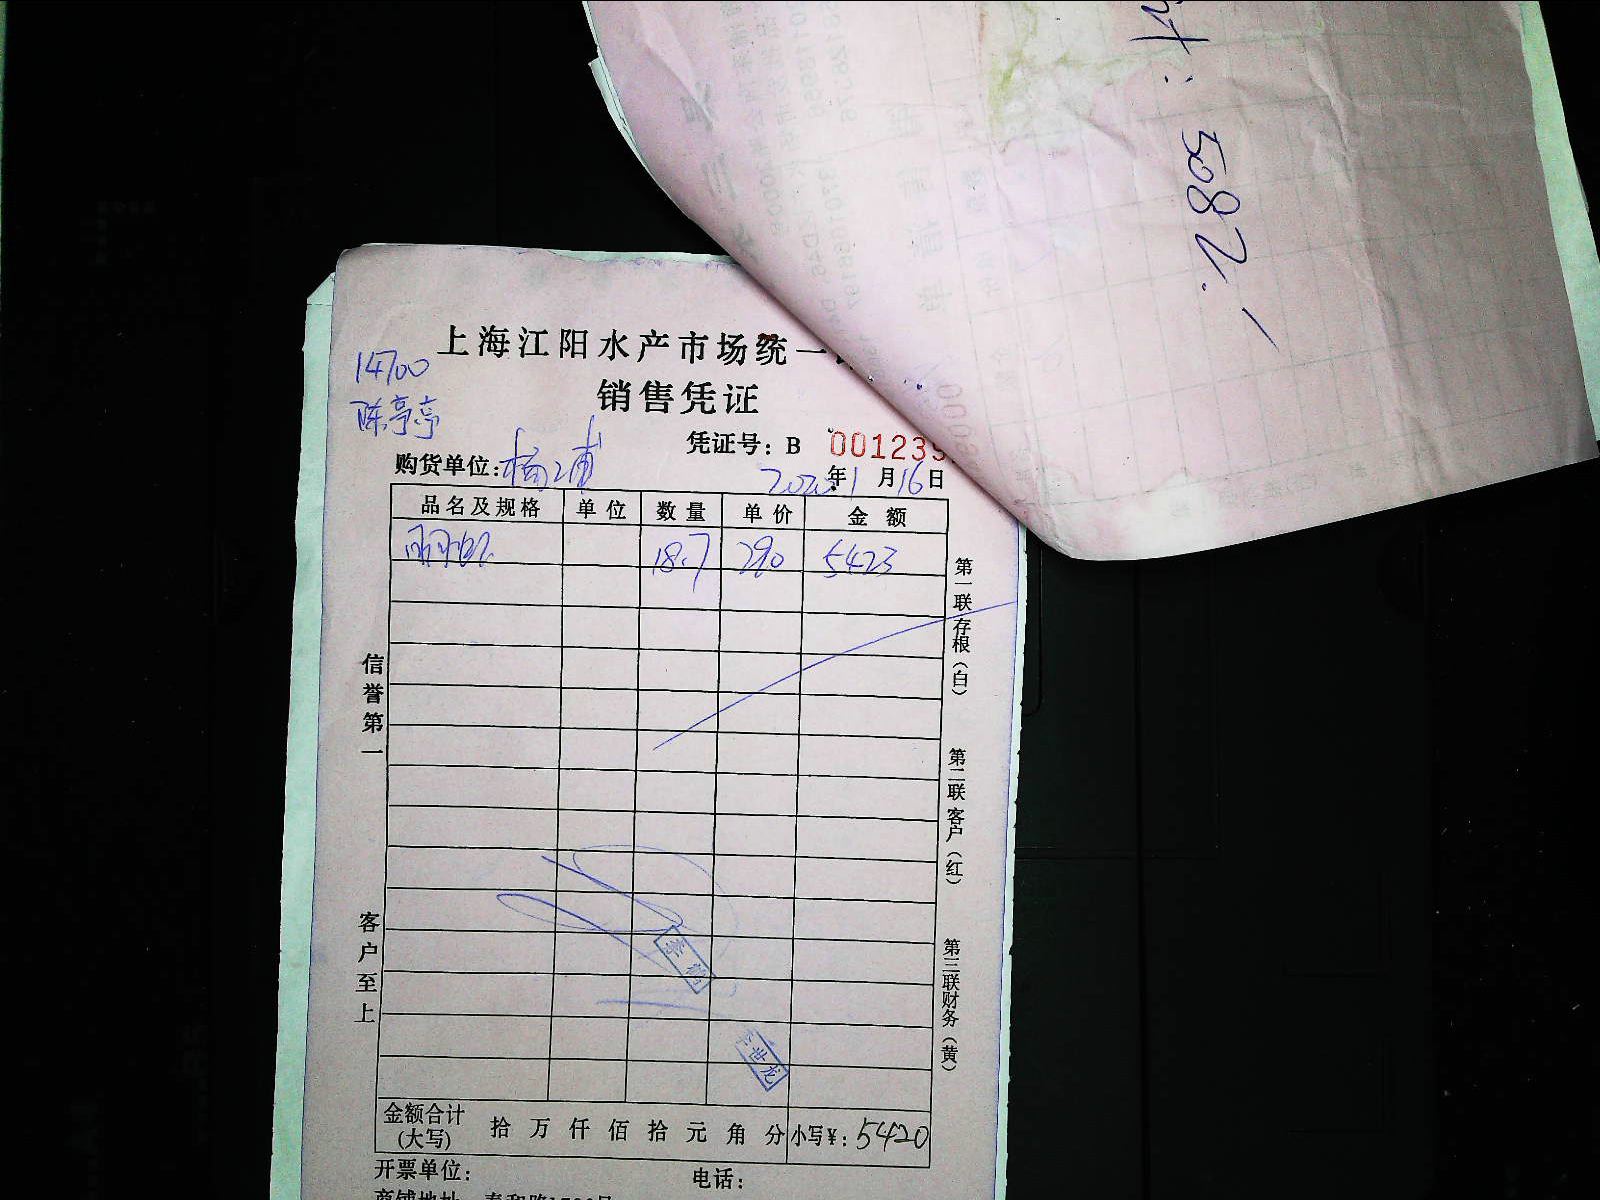 5082.
上海江阳水产市场统一
14700
销售凭证
陈亭亭
凭证号: B 001239
购货单位: 杨浦
2020年1月16日
品名及规格 单位 数量 单价 金额
18.7 290 5423
第一联存根(白)
第二联客户(红)
第三联财务(黄)
信誉第一
客户至上
李世龙
金额合计(大写) 拾万仟佰拾元角分 小写¥: 5420
开票单位: 电话: